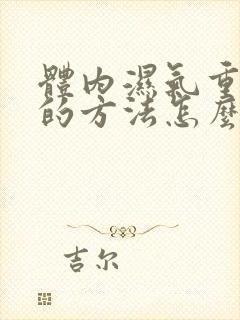 體内濕氣重
的方法怎麼
吉尔